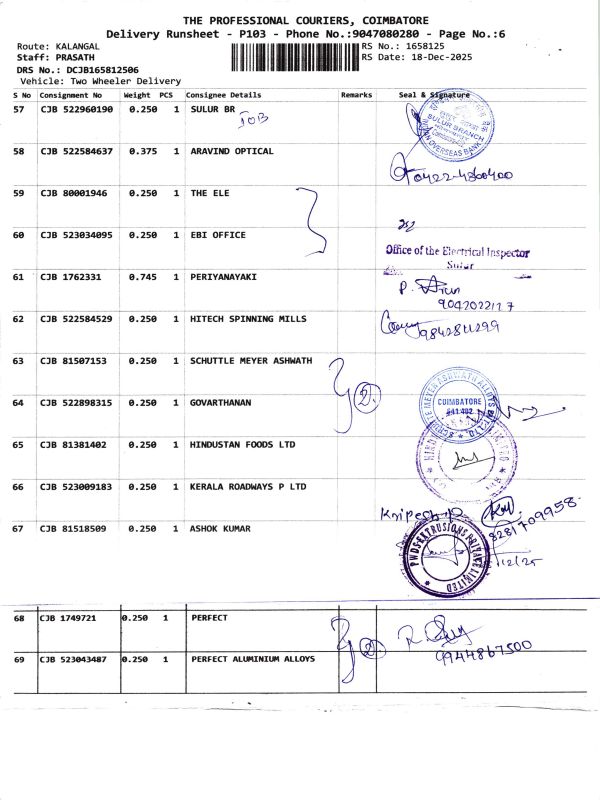 THE PROFESSIONAL COURIERS, COIMBATORE
Delivery Runsheet - P103 - Phone No.:9047080280 - Page No.:6
Route: KALANGAL
RS No.: 1658125
Staff: PRASATH
RS Date: 18-Dec-2025
DRS No.: DCJB165812506
Vehicle: Two Wheeler Delivery
S No Consignment No Weight PCS Consignee Details Remarks Seal & Signature
57 CJB 522960190 0.250 1 SULUR BR
IOB
SULUR BRANCH
OVERSEAS BANK
58 CJB 522584637 0.375 1 ARAVIND OPTICAL
0422-4860400
59 CJB 80001946 0.250 1 THE ELE
60 CJB 523034095 0.250 1 EBI OFFICE
Office of the Electrical Inspector
Sulur
61 CJB 1762331 0.745 1 PERIYANAYAKI
P. Arun
9047022127
62 CJB 522584529 0.250 1 HITECH SPINNING MILLS
9842811299
63 CJB 81507153 0.250 1 SCHUTTLE MEYER ASHWATH
64 CJB 522898315 0.250 1 GOVARTHANAN
2
COIMBATORE
641 402
65 CJB 81381402 0.250 1 HINDUSTAN FOODS LTD
66 CJB 523009183 0.250 1 KERALA ROADWAYS P LTD
67 CJB 81518509 0.250 1 ASHOK KUMAR
8281709958
PWDS-EXTRUSIONS PRIVATE LIMITED
/12/25
68 CJB 1749721 0.250 1 PERFECT
2
69 CJB 523043487 0.250 1 PERFECT ALUMINIUM ALLOYS
9944867500